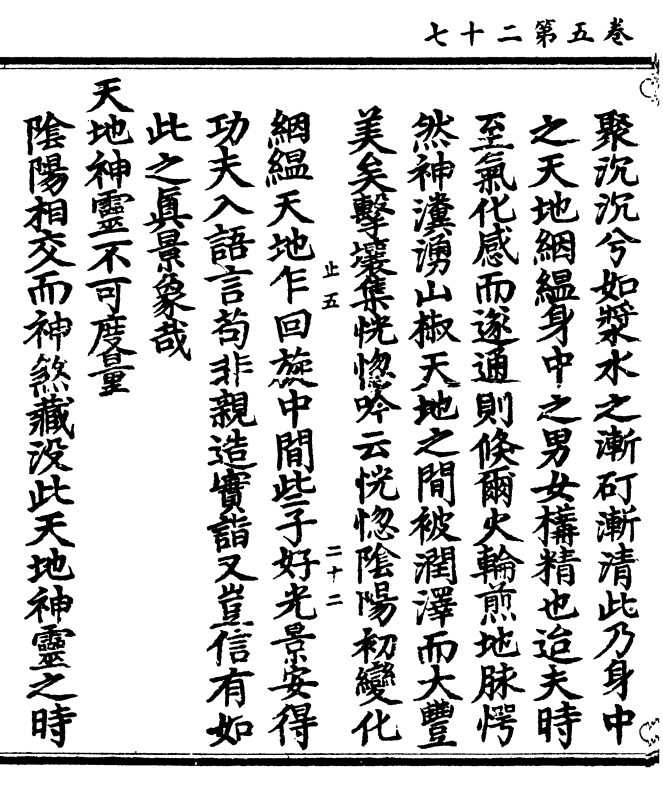 卷五第二十七
聚沉沉兮如漿水之漸矴漸清此乃身中
之天地綑縕身中之男女構精也迨夫時
至氣化感而遂通則倏爾火輪煎地脉愕
然神瀵湧山椒天地之間被潤澤而大豐
美矣擊壤集恍惚吟云恍惚陰陽初變化
止五
二十二
綑縕天地乍回旋中間些子好光景安得
功夫入語言苟非親造實詣又豈信有如
此之眞景象哉
天地神靈不可度量
陰陽相交而神煞藏没此天地神靈之時